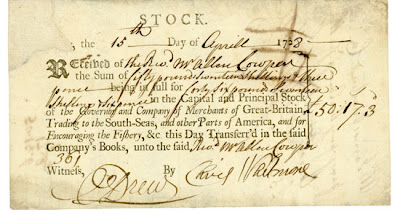 STOCK.
the 15th Day of Aprill 1728
Received of the Revd. Mr Allen Cowper
the Sum of fifty pounds seventeen Shillings & three
pence being in full for forty six pounds seventeen
Shillings & six pence in the Capital and Principal Stock
of the Governor and Company of Merchants of Great-Britain,
Trading to the South-Seas, and other Parts of America, and for
Encouraging the Fishery, &c this Day Transferr'd in the said
Company's Books, unto the said Revd. Mr Allen Cowper
£50:17:3
361
Witness, By
Drew